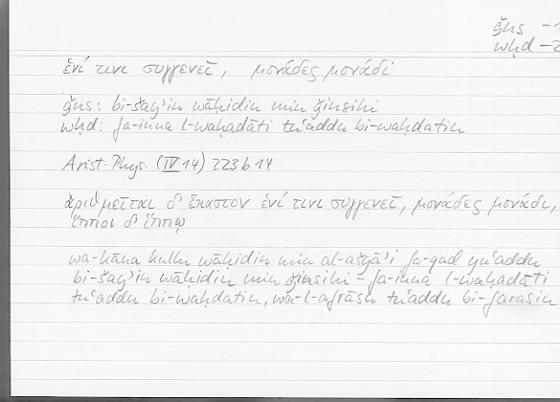 ǧns -1
wḥd -2
ἑνί τινι συγγενεῖ, μονάδες μονάδι
ǧns: bi-šayʾin wāḥidin min ǧinsihi
wḥd: fa-inna l-waḥadāti tuʿaddu bi-waḥdatin
Arist. Phys. (IV 14) 223b14
ἀριθμεῖται δ' ἕκαστον ἑνί τινι συγγενεῖ, μονάδες μονάδι,
ἵπποι δ' ἵππῳ
wa-kāna kullu wāḥidin min al-ašyāʾi fa-qad yuʿaddu
bi-šayʾin wāḥidin min ǧinsihi – fa-inna l-waḥadāti
tuʿaddu bi-waḥdatin, wa-l-afrāsu tuʿaddu bi-farasin